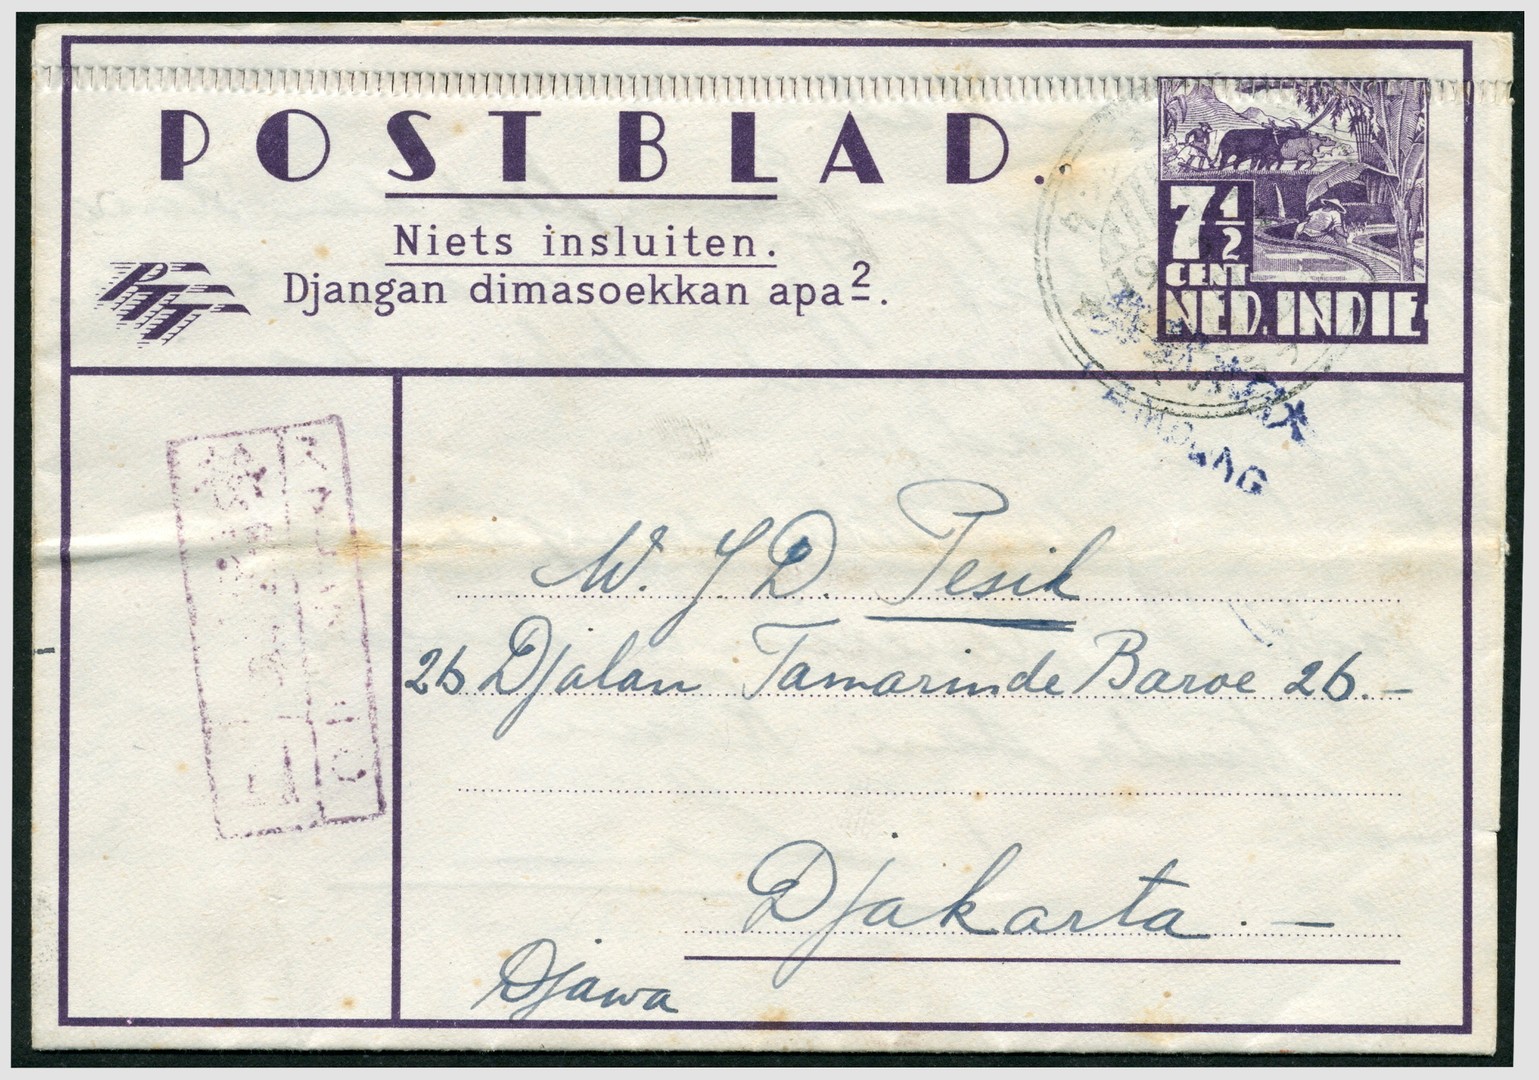 POSTBLAD.
Niets insluiten.
Djangan dimasoekkan apa2.
PTT
7 1/2
CENT
NED. INDIE
W. J. D. Pesik
26 Djalan Tamarinde Baroe 26.-
Djakarta.-
Djawa